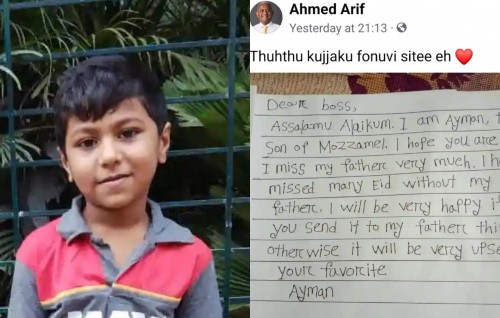 Ahmed Arif
Yesterday at 21:13 ·
Thuhthu kujjaku fonuvi sitee eh ❤️
Deare boss,
Assalamu Alaikum. I am Ayman, t
Son of Mozzamel. I hope you are
I miss my fatherc vercy much. I h
missed many Eid without my
fatherc. I will be vercy happy if
you send it to my fatherc thi
otherwise it will be vercy upse
yourc favorcite
Ayman